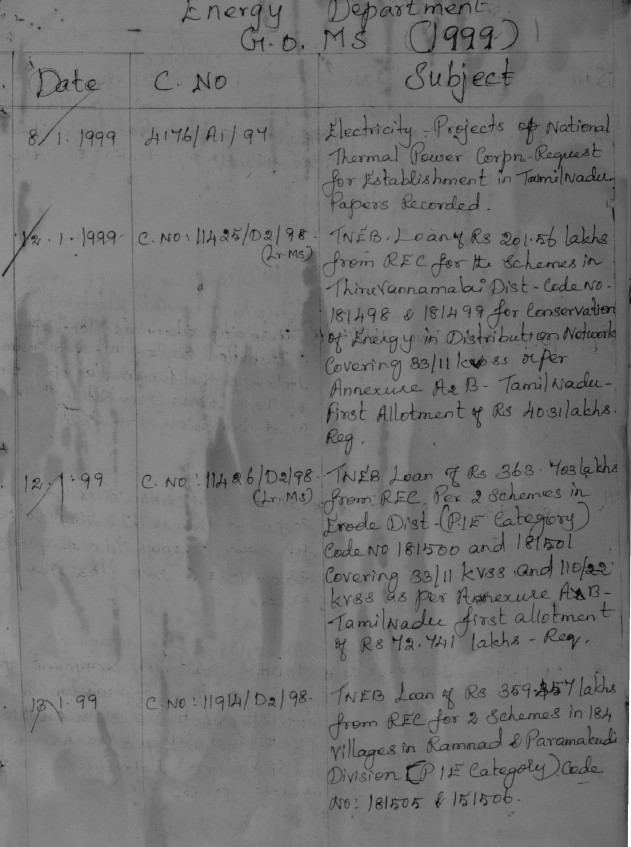 Energy Department
G.O. MS (1999)
Date C. NO Subject
8/1.1999 4176/A1/97 Electricity - Projects of National
Thermal Power Corpn. Request
for Establishment in TamilNadu
Papers Recorded.
12.1.1999 C.NO: 11425/D2/98. TNEB. Loan of Rs 201.56 lakhs
(Lr.Ms) from REC for the Schemes in
Thiruvannamalai Dist - Code No.
181498 & 181499 for Conservation
of Energy in Distribution Network
Covering 33/11 kvss as per
Annexure A & B - Tamil Nadu -
First Allotment of Rs 40.31 lakhs.
Reg.
12.1.99 C.NO: 11426/D2/98. TNEB Loan of Rs 363.703 lakhs
(Lr.Ms) from REC Per 2 Schemes in
Erode Dist - (P.IE Category)
Code NO 181500 and 181501
Covering 33/11 kvss and 110/22
kvss as per Annexure A & B -
TamilNadu first allotment
of Rs 72.741 lakhs - Reg.
13.1.99 C.NO: 11914/D2/98. TNEB Loan of Rs 359. lakhs
from REC for 2 Schemes in 184
Villages in Ramnad & Paramakudi
Division (P IE Category) Code
NO: 181505 & 151506.